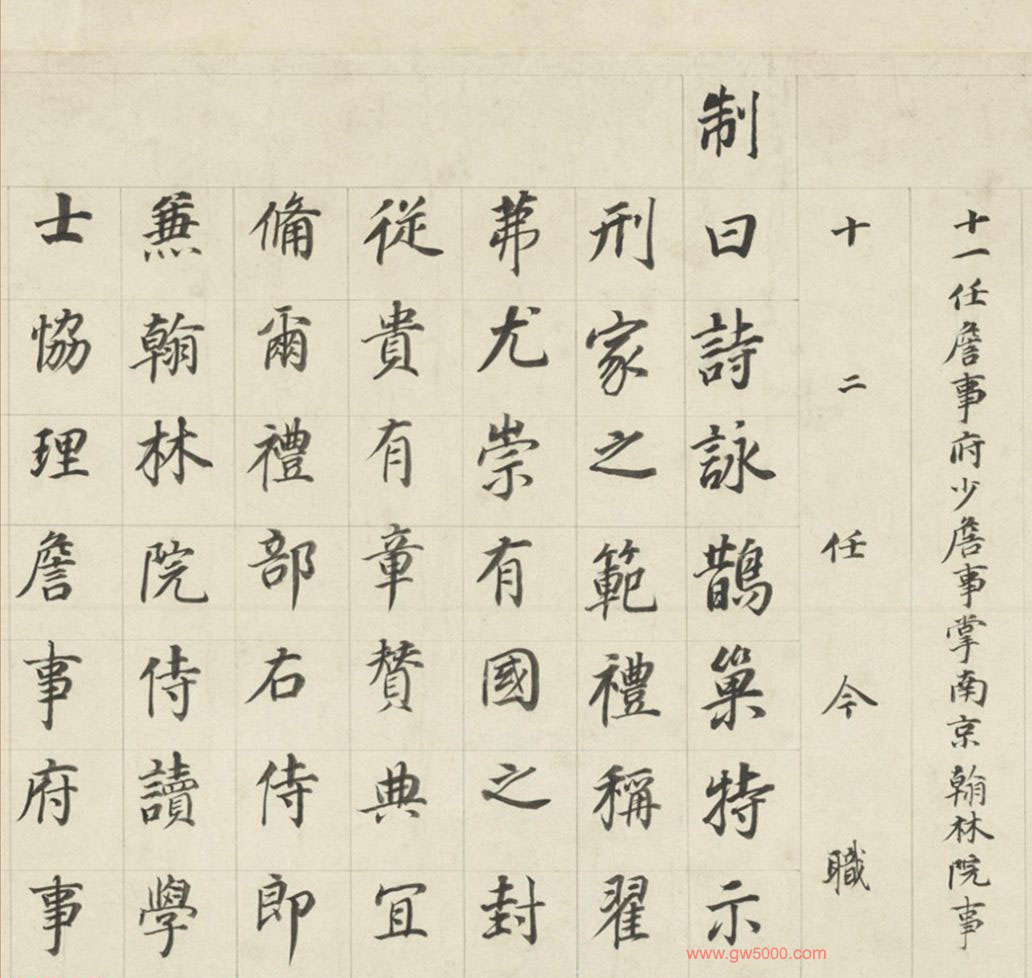 十一任詹事府少詹事掌南京翰林院事
十二任今職
制曰詩詠鵲巢特示
刑家之範禮稱翟
茀尤崇有國之封
從貴有章贊典宜
備爾禮部右侍郎
兼翰林院侍讀學
士協理詹事府事
www.gw5000.com